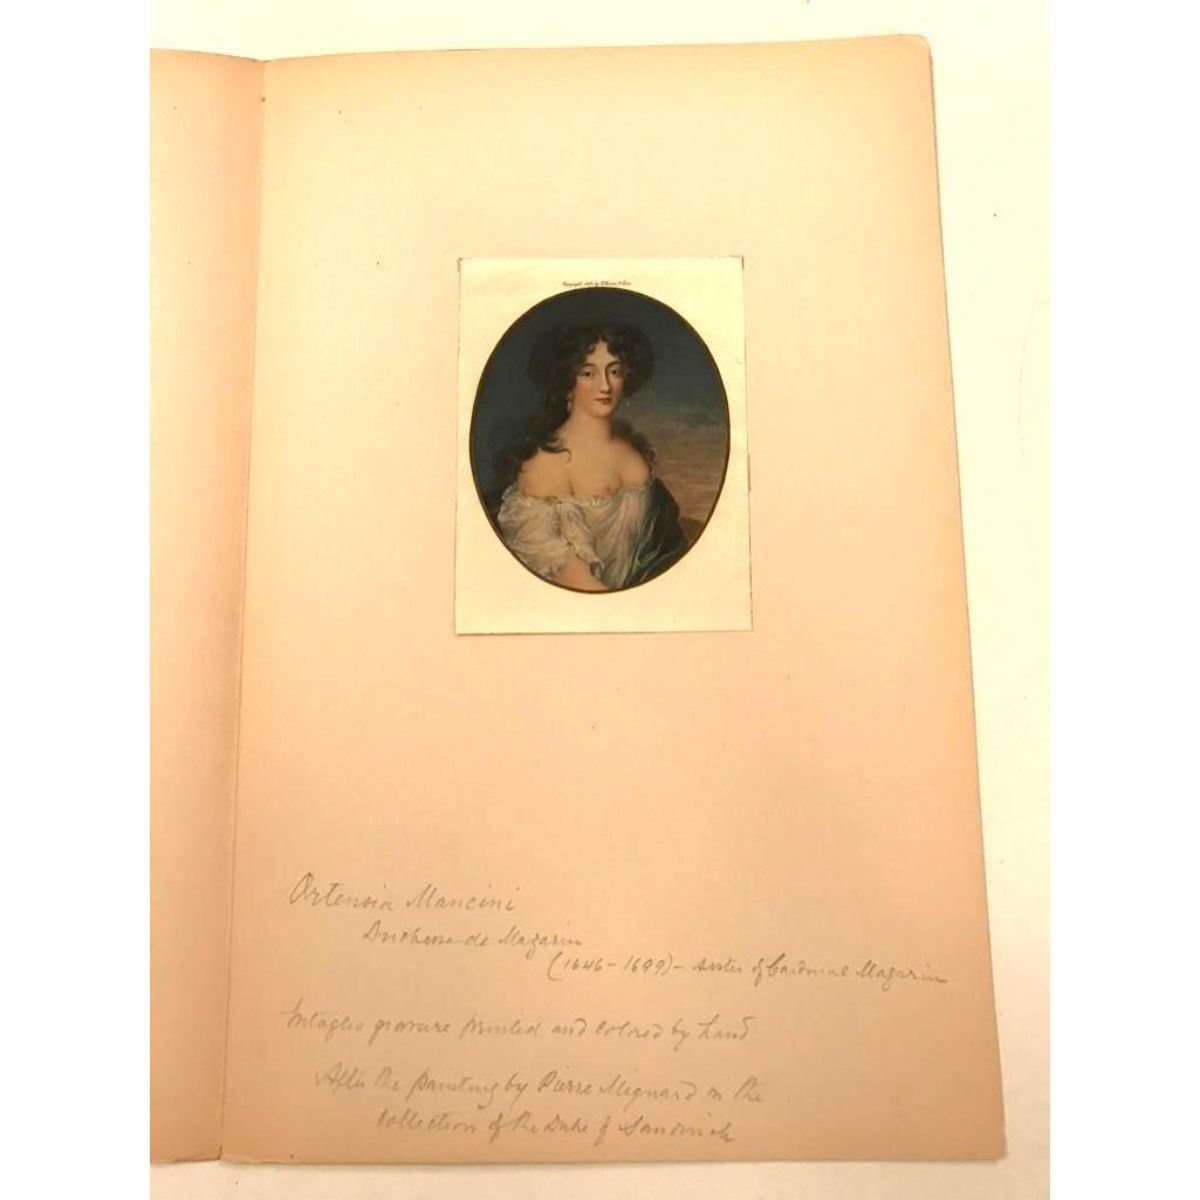 Ortensia Mancini
Duchesse de Mazarin
(1646-1699) - sister of Cardinal Mazarin
Intaglio gravure printed and colored by hand
After the painting by Pierre Mignard in the
Collection of the Duke of Sandwich